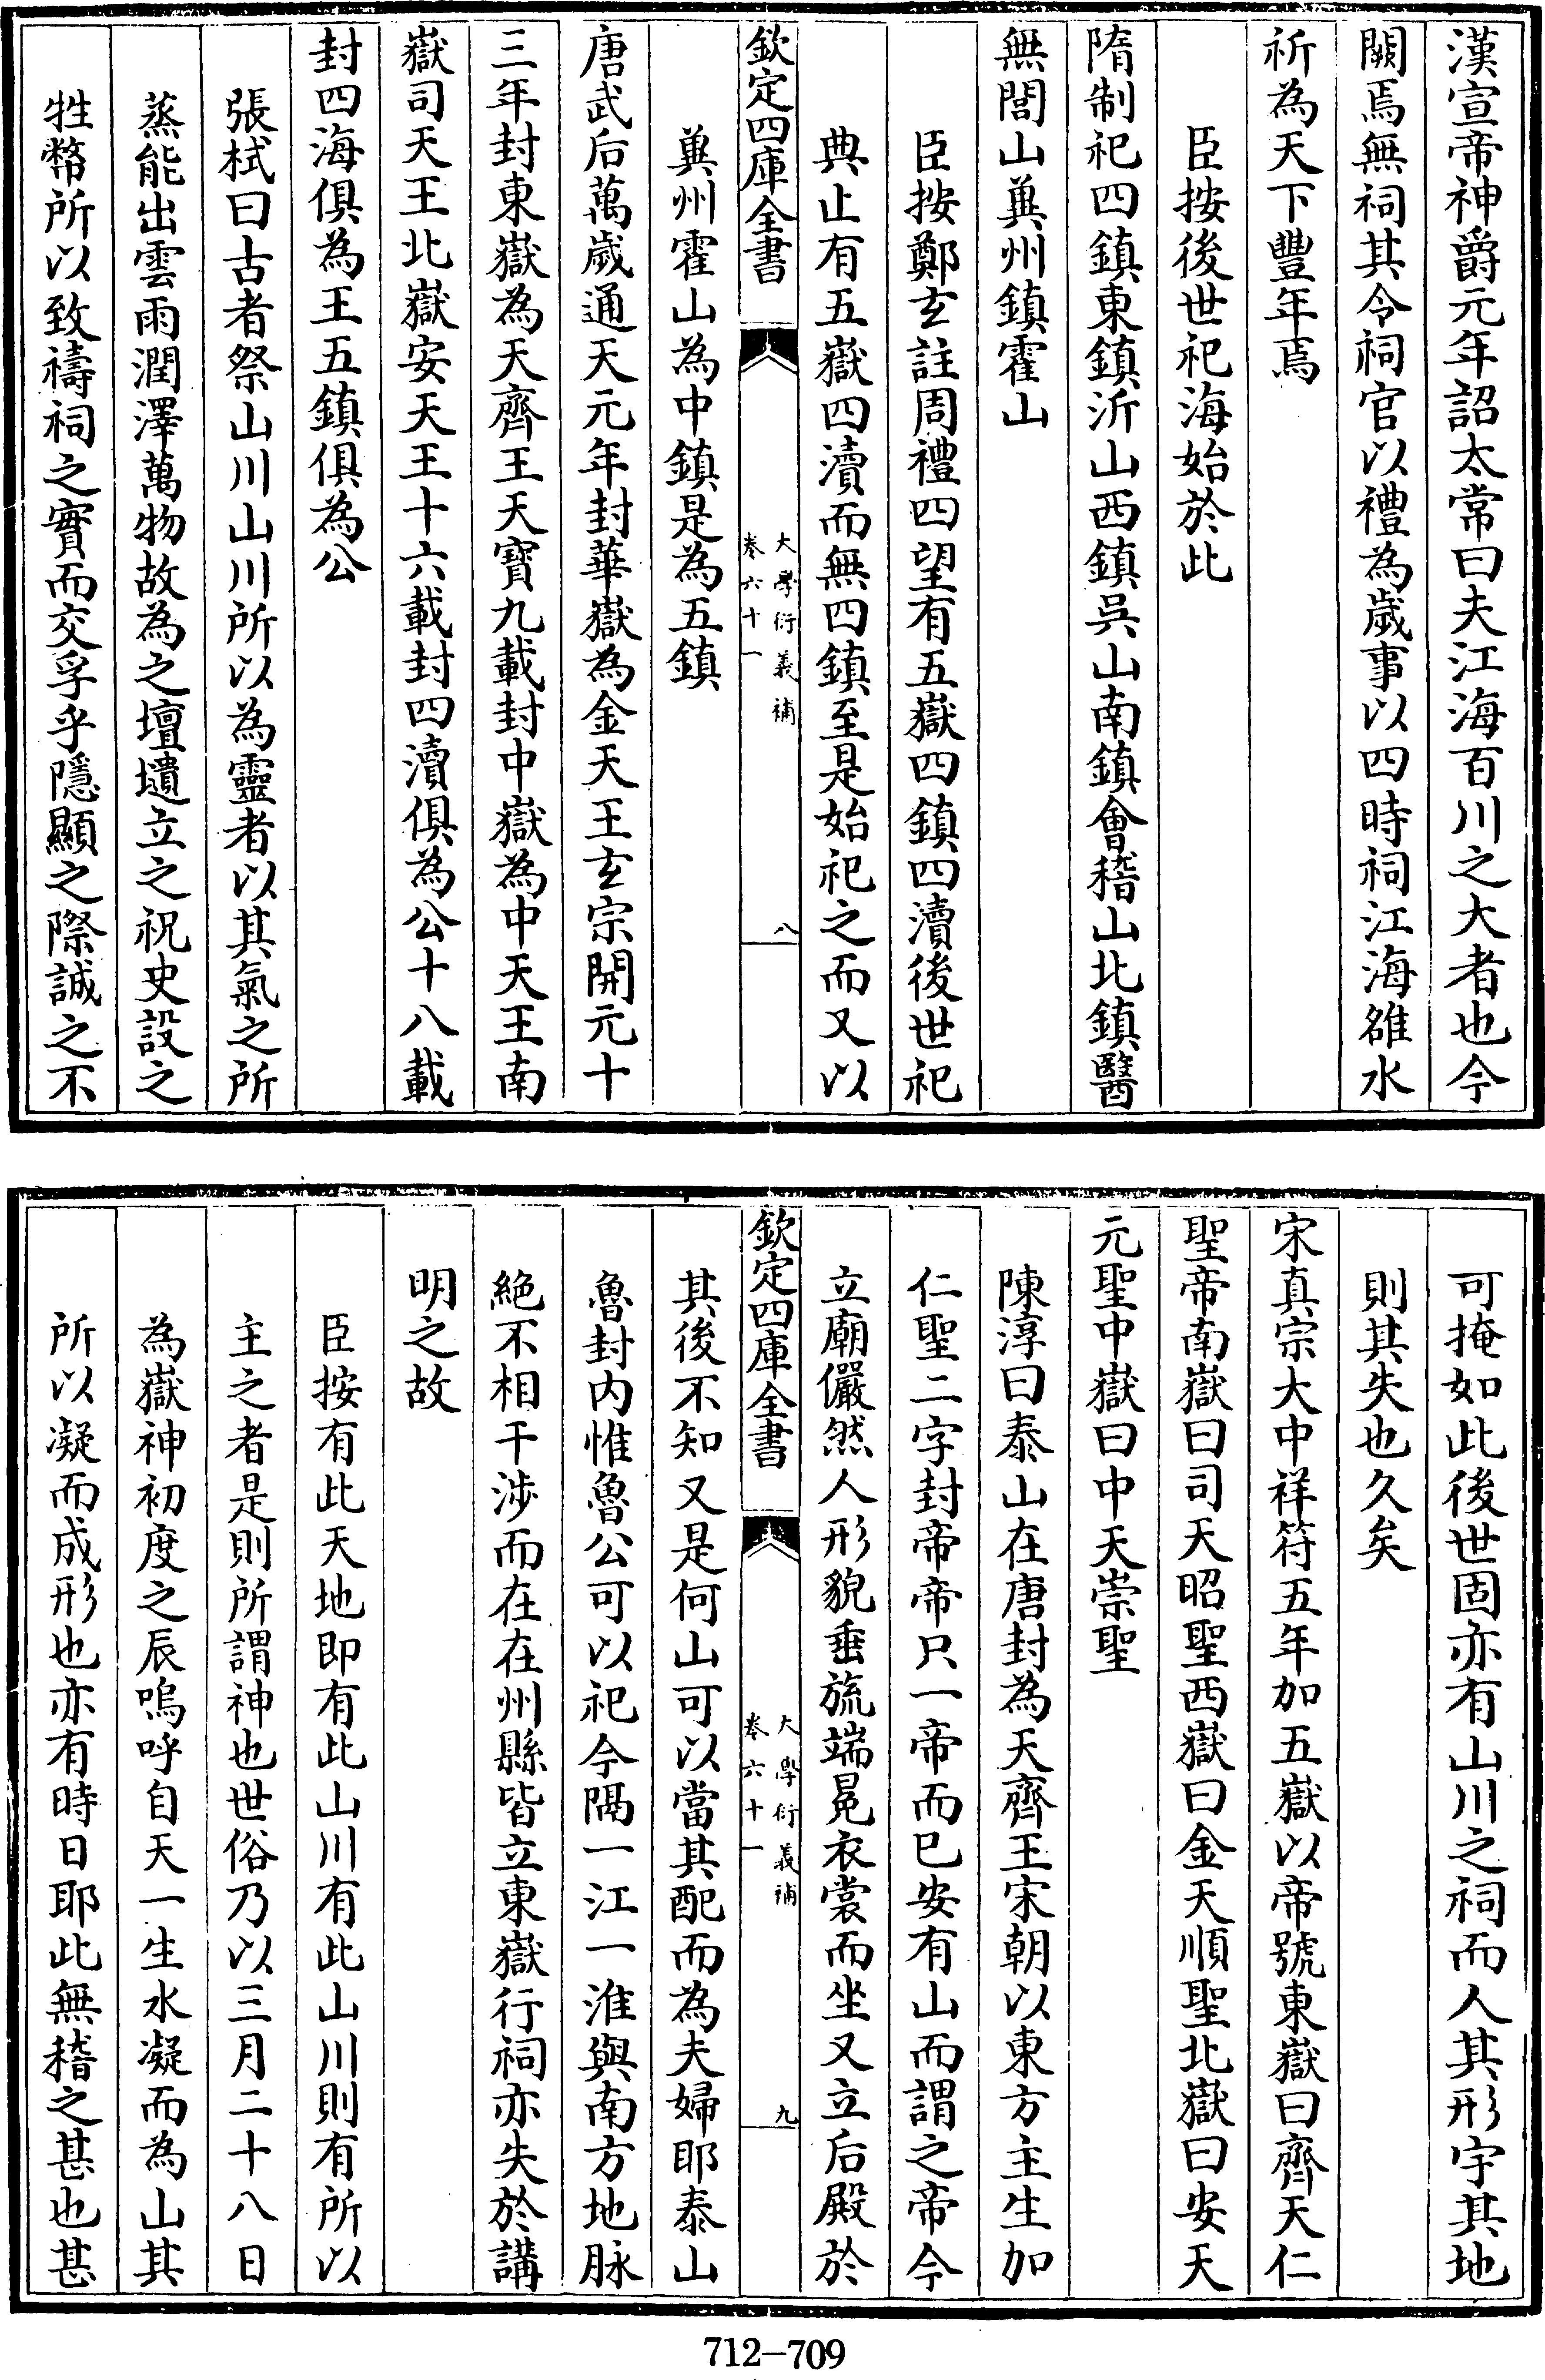 漢宣帝神爵元年詔太常曰夫江海百川之大者也今
闕焉無祠其令祠官以禮為歲事以四時祠江海雒水
祈為天下豐年焉
臣按後世祀海始於此
隋制祀四鎮東鎮沂山西鎮吳山南鎮會稽山北鎮醫
無閭山冀州鎮霍山
臣按鄭玄註周禮四望有五嶽四鎮四瀆後世祀
典止有五嶽四瀆而無四鎮至是始祀之而又以
欽定四庫全書
大學衍義補
卷六十一
八
冀州霍山為中鎮是為五鎮
唐武后萬歲通天元年封華嶽為金天王玄宗開元十
三年封東嶽為天齊王天寶九載封中嶽為中天王南
嶽司天王北嶽安天王十六載封四瀆俱為公十八載
封四海俱為王五鎮俱為公
張栻曰古者祭山川山川所以為靈者以其氣之所
蒸能出雲雨潤澤萬物故為之壇壝立之祝史設之
牲幣所以致禱祠之實而交孚乎隱顯之際誠之不
可掩如此後世固亦有山川之祠而人其形宇其地
則其失也久矣
宋真宗大中祥符五年加五嶽以帝號東嶽曰齊天仁
聖帝南嶽曰司天昭聖西嶽曰金天順聖北嶽曰安天
元聖中嶽曰中天崇聖
陳淳曰泰山在唐封為天齊王宋朝以東方主生加
仁聖二字封帝帝只一帝而已安有山而謂之帝今
立廟儼然人形貌垂旒端冕衣裳而坐又立后殿於
欽定四庫全書
大學衍義補
卷六十一
九
其後不知又是何山可以當其配而為夫婦耶泰山
魯封内惟魯公可以祀今隅一江一淮與南方地脉
絶不相干涉而在在州縣皆立東嶽行祠亦失於講
明之故
臣按有此天地即有此山川有此山川則有所以
主之者是則所謂神也世俗乃以三月二十八日
為嶽神初度之辰嗚呼自天一生水凝而為山其
所以凝而成形也亦有時日耶此無稽之甚也甚
712-709